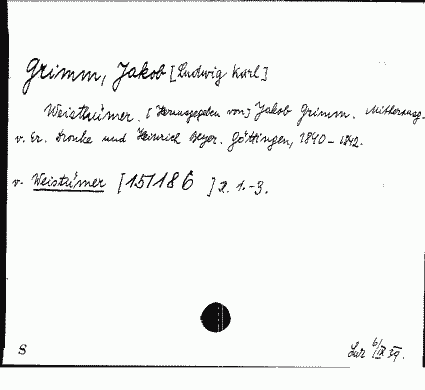 Grimm, Jakob [Ludwig Karl]
Weisthümer. [Herausgegeben von] Jakob Grimm. Mitherausg.
v. Er. Dronke und Heinrich Beyer. Göttingen, 1840-1842.
v. Weistümer [15/186 ] 2. 1.-3.
S 6/IX 39.